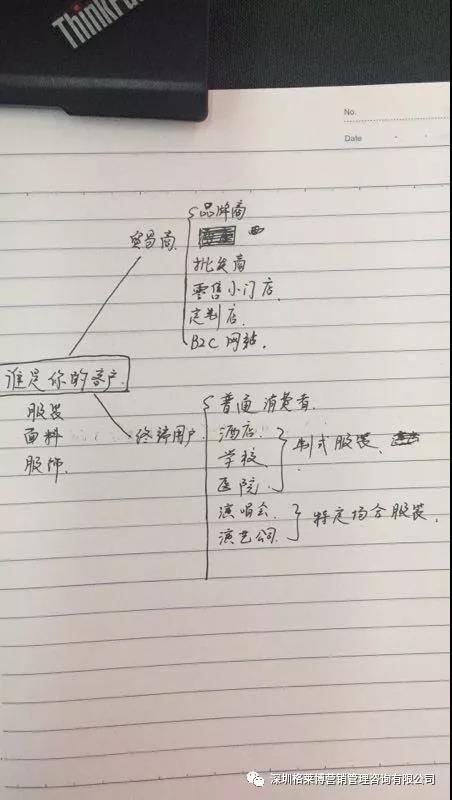 ThinkPad
No.
Date
贸易商
品牌商
批发商
零售小门店
定制店
B2C 网站.
谁是你的客户.
服装
面料
服饰
终端用户
普通消费者
酒店.
学校
医院
制式服装
演唱会
演艺公司
特定场合服装.
深圳格莱博营销管理咨询有限公司